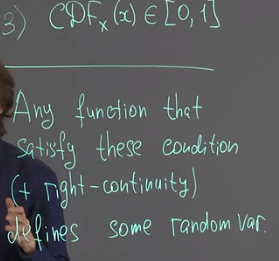 3) CDFₓ(x) ∈ [0, 1]
Any function that
satisfy these condition
(+ right-continuity)
defines some random var.